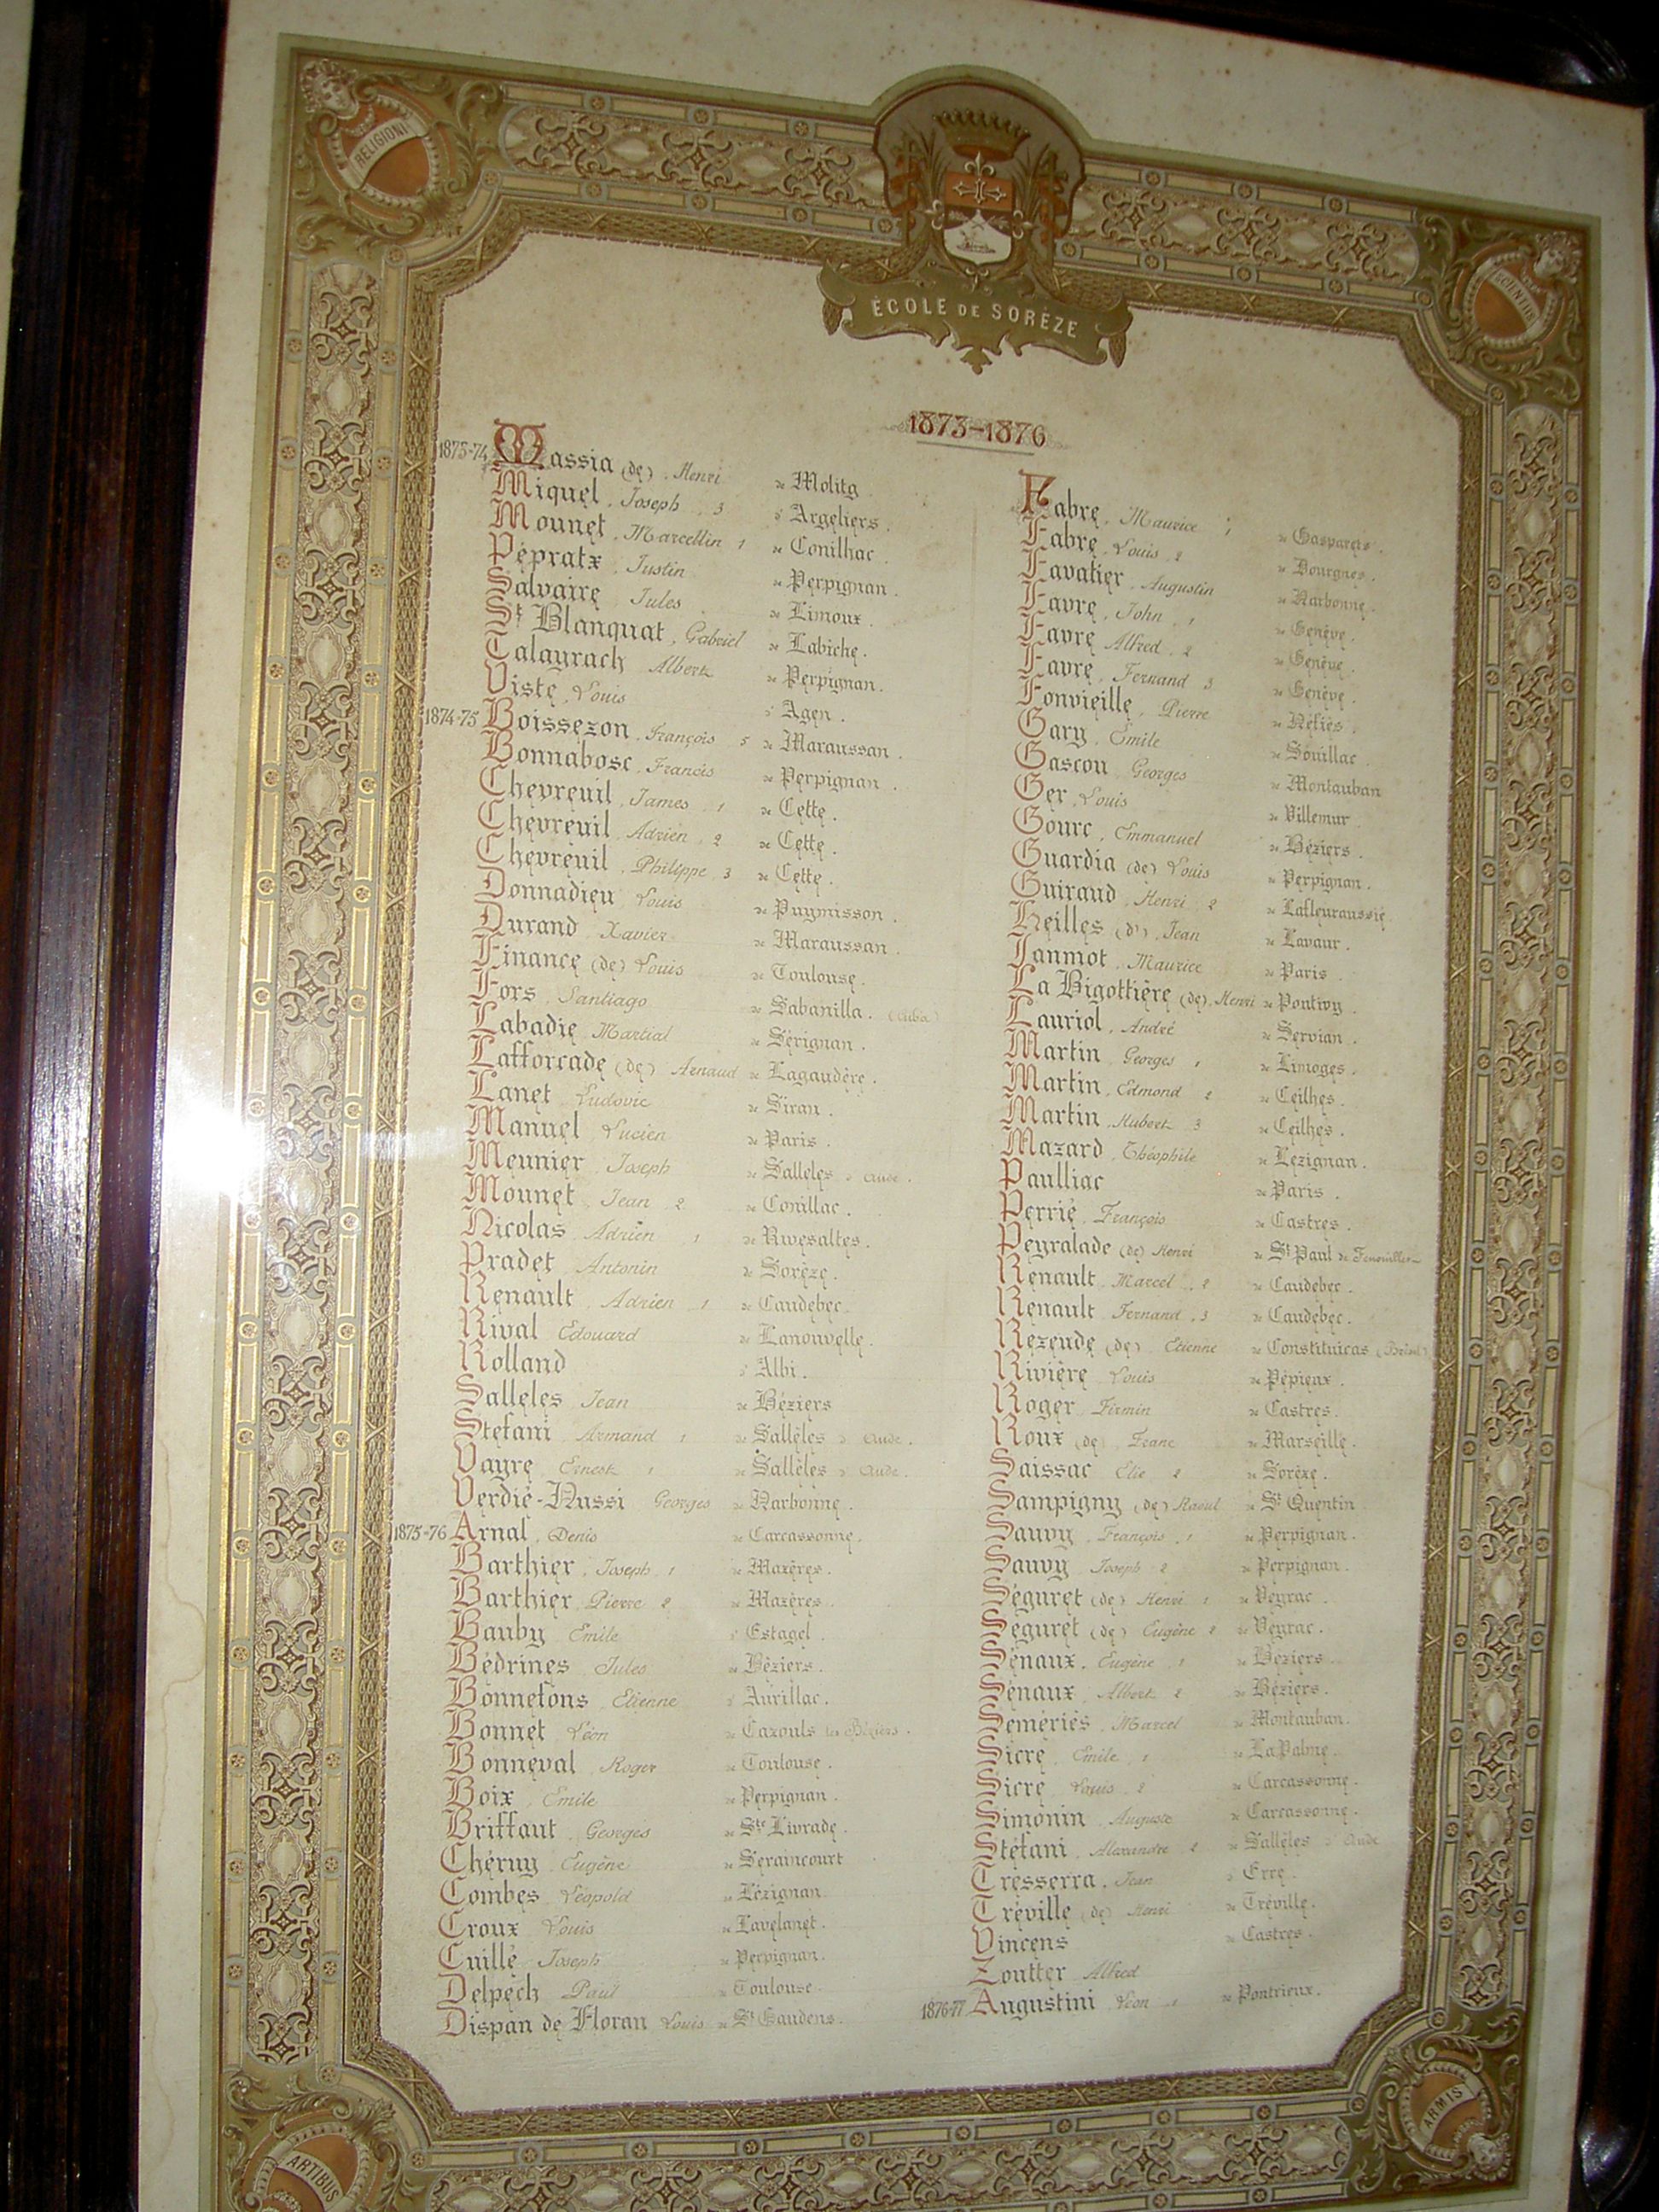 RELIGIONI
SCIENTIIS
ÉCOLE DE SORÈZE
1873-1876
1873-74 Massia (de) . Henri de Molitg
Miquel . Joseph . 3 d' Argeliers .
Mounet . Marcellin 1 de Conilhac .
Pépratx . Justin de Perpignan .
Salvaire . Jules . de Limoux .
St Blanquat . Gabriel de Labiche .
Talayrach Albert de Perpignan .
Viste . Louis d' Agen .
1874-75 Boissezon . François 5 de Maraussan .
Bonnabosc . Francis de Perpignan .
Chevreuil . James . 1 de Cette .
Chevreuil . Adrien . 2 de Cette .
Chevreuil . Philippe 3 de Cette .
Donnadieu Louis de Puymisson .
Durand Xavier de Maraussan .
Finance (de) Louis de Toulouse .
Fors . Santiago de Sabanilla . (Cuba)
Labadie Martial de Sérignan .
Lafforcade (de) Arnaud de Lagaudère .
Lanet Ludovic de Siran .
Manuel Lucien de Paris .
Meunier . Joseph de Salleles d' Aude .
Mounet . Jean 2 de Conillac .
Nicolas . Adrien 1 de Rivesaltes .
Pradet . Antonin de Sorèze .
Renault . Adrien . 1 de Caudebec .
Rival Edouard de Lanouvelle .
Rolland d' Albi .
Salleles Jean de Béziers
Stefani . Armand 1 de Salleles d' Aude .
Vayre Ernest 1 de Salleles d' Aude .
Verdié-Aussi Georges de Narbonne .
1875-76 Arnal . Denis de Carcassonne .
Barthier . Joseph . 1 de Mazères .
Barthier . Pierre 2 de Mazères
Bauby Emile d' Estagel .
Bédrines Jules de Béziers .
Bonnefons Etienne d' Aurillac .
Bonnet Léon de Cazouls les Béziers .
Bonneval . Roger de Toulouse .
Boix . Emile de Perpignan .
Briffaut . Georges de Ste Livrade .
Chéruy Eugène de Seraincourt
Combes Léopold de Lézignan
Croux Louis de Lavelanet .
Cuillé Joseph de Perpignan .
Delpech Paul de Toulouse .
Dispan de Floran Louis de St Gaudens .
Fabre . Maurice 1 de Gasparets .
Fabre . Louis 2 de Dourgnes .
Favatier . Augustin de Narbonne .
Favre . John . 1 de Genève .
Favre Alfred . 2 de Genève .
Favre . Fernand 3 de Genève .
Fonvieille . Pierre de Néfiès .
Gary . Emile de Souillac .
Gascou Georges de Montauban
Ger . Louis de Villemur
Gourc . Emmanuel de Béziers .
Guardia (de) Louis de Perpignan .
Guiraud . Henri 2 de Lafleuraussie
Heilles (d') Jean de Lavaur .
Janmot . Maurice de Paris .
La Bigottière (de) . Henri de Pontivy .
Lauriol . André de Servian .
Martin Georges 1 de Limoges .
Martin . Edmond 2 de Ceilhes .
Martin . Hubert 3 de Ceilhes .
Mazard . Théophile de Lézignan .
Paulliac de Paris .
Perrié . François de Castres .
Peyralade (de) Henri de St Paul de Fenouillet
Renault . Marcel . 2 de Caudebec .
Renault Fernand . 3 de Caudebec .
Rezende (de) . Etienne de Constituicas (Brésil)
Rivière Louis de Pépieux .
Roger Firmin de Castres .
Roux (de) Franc de Marseille .
Saissac Elie 2 de Sorèze .
Sampigny (de) Raoul de St Quentin
Sauvy . François . 1 de Perpignan .
Sauvy Joseph 2 de Perpignan .
Séguret (de) Henri 1 de Veyrac .
Séguret (de) Eugène 2 de Veyrac .
Sénaux . Eugène 1 de Béziers .
Sénaux . Albert 2 de Béziers .
Semériès . Marcel de Montauban .
Sicre Emile . 1 de La Palme .
Sicre Louis 2 de Carcassonne .
Simonin Auguste de Carcassonne .
Stéfani . Alexandre 2 de Salleles d' Aude
Tresserra . Jean d' Erre .
Tréville (de) Henri de Tréville .
Vincens de Castres .
Zoutter Alfred
1876-77 Augustini Léon 1 de Pontrieux .
ARTIBUS
ARMIS